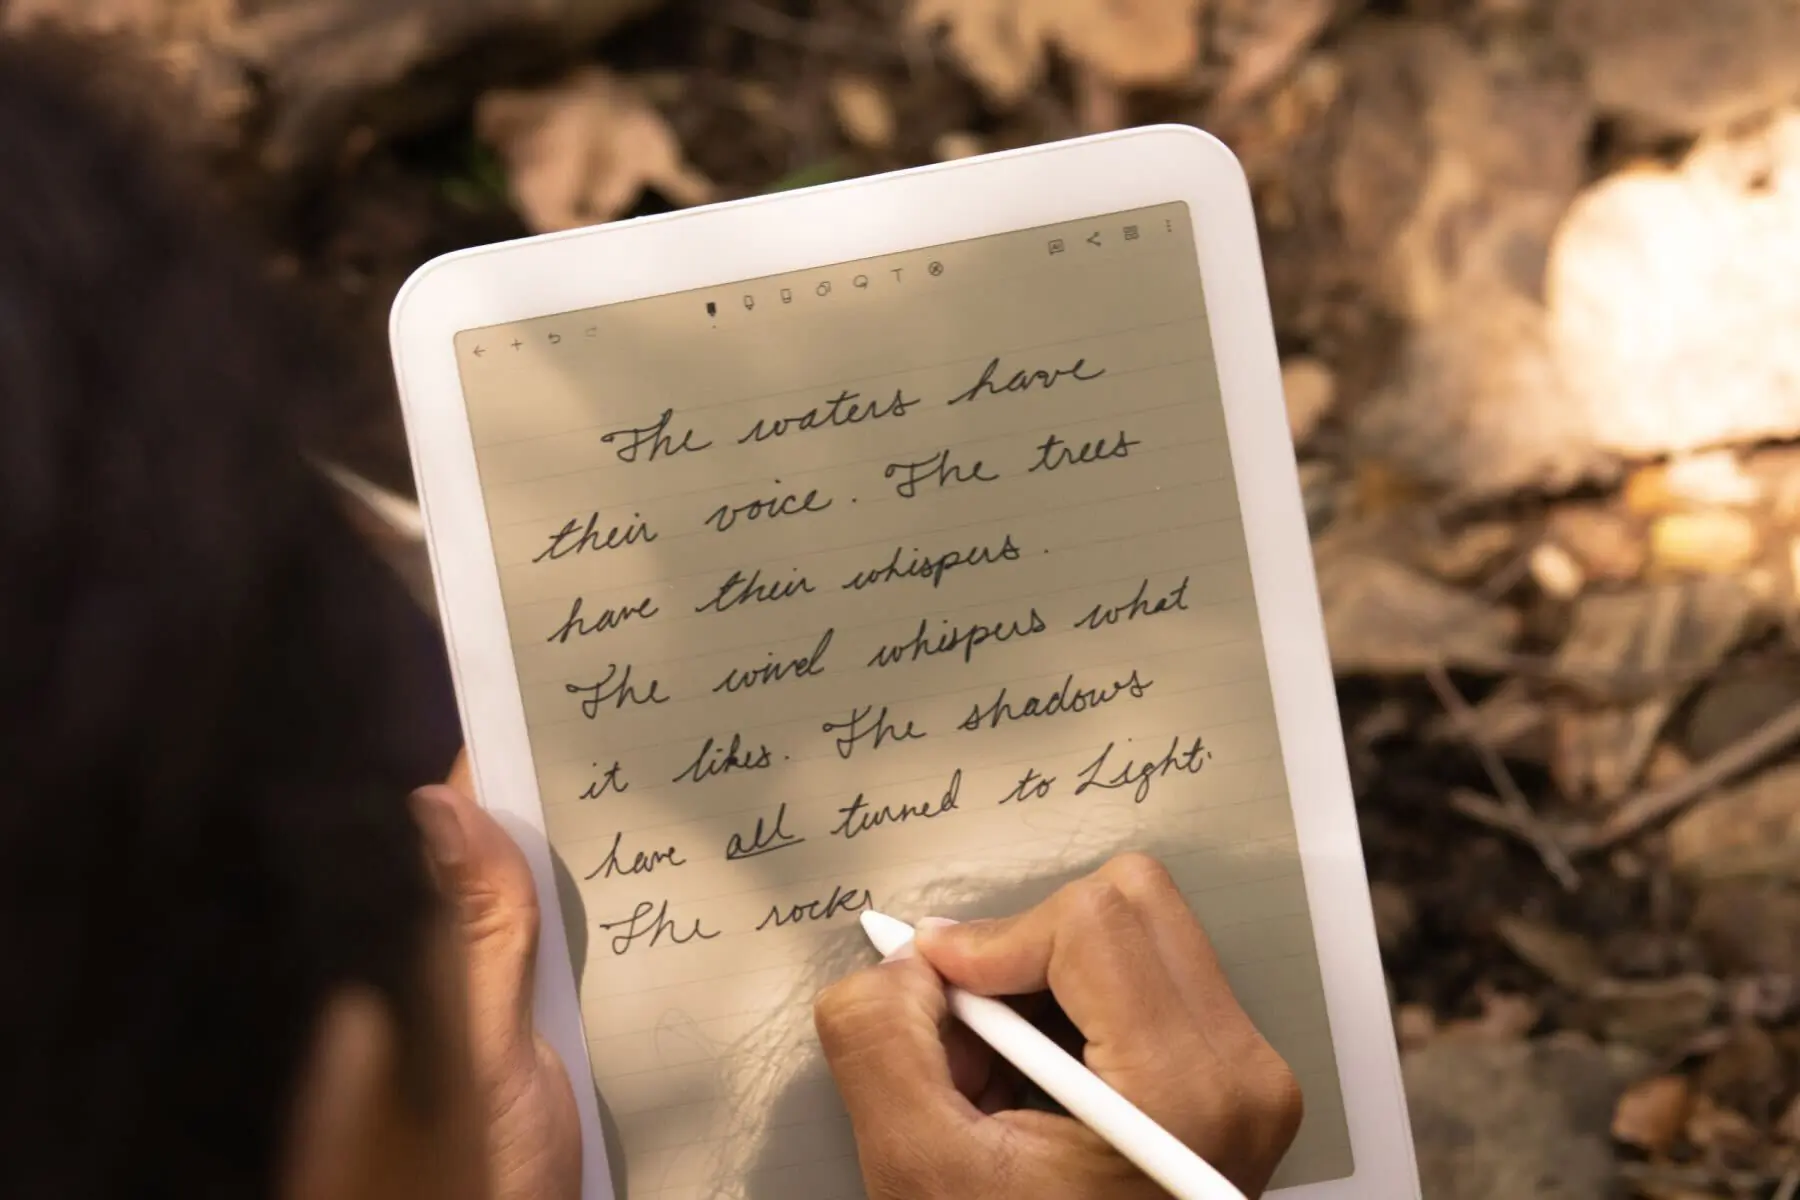 The waters have
their voice. The trees
have their whispers.
The wind whispers what
it likes. The shadows
have all turned to Light.
The rocks